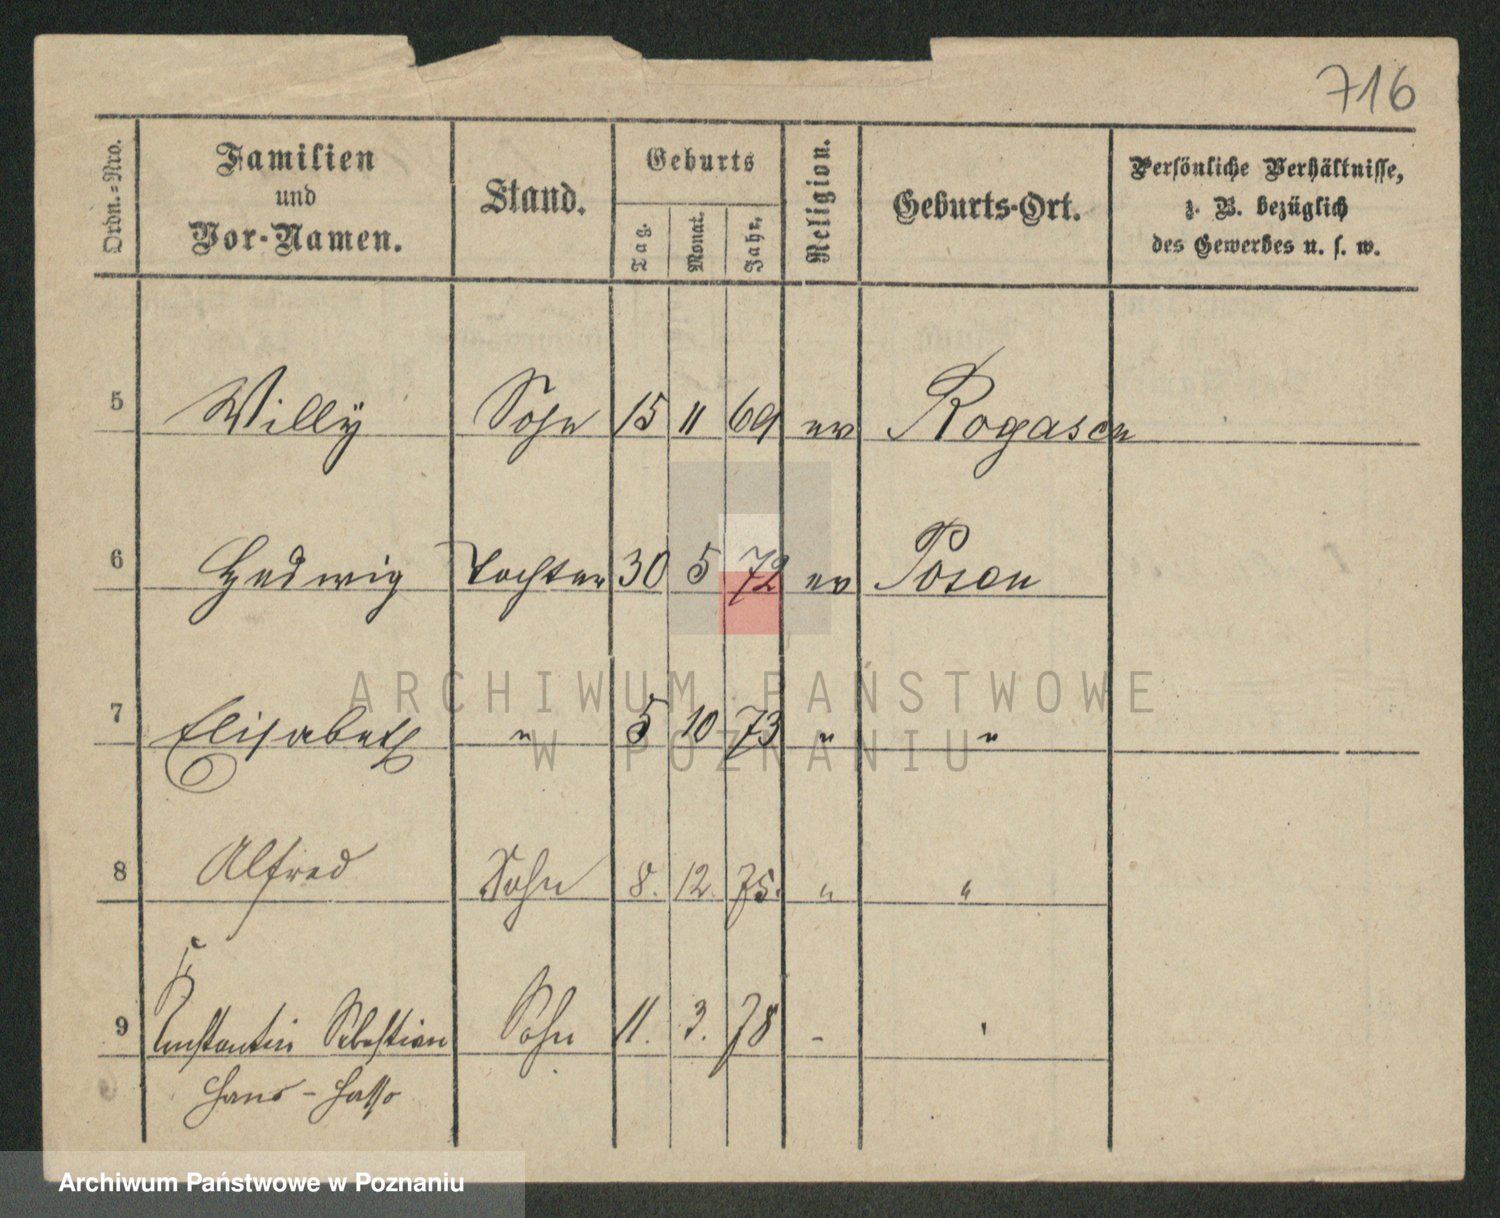 716
Ordn.-Nro.
Familien
und
Vor-Namen.
Stand.
Geburts
Tag.
Monat.
Jahr.
Religion.
Geburts-Ort.
Persönliche Verhältnisse,
z. B. bezüglich
des Gewerbes u. s. w.
5 Willy Sohn 15 11 69 ev Rogasen
6 Hedwig Tochter 30 5 72 ev Posen
ARCHIWUM PAŃSTWOWE
7 Elisabeth " 5 10 73 " "
W POZNANIU
8 Alfred Sohn 8. 12. 75. " "
9 Constantin Sebastian Sohn 11. 3. 78 -
Hans-Hasso
Archiwum Państwowe w Poznaniu